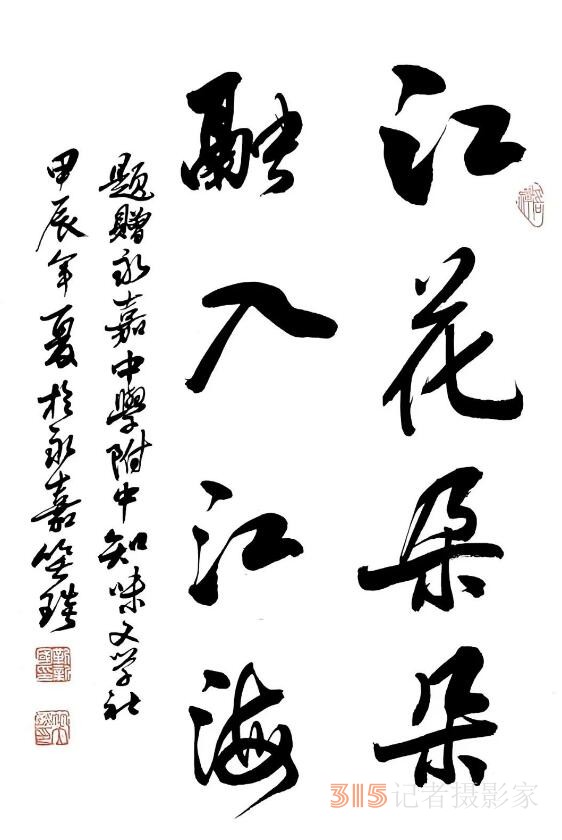 江花朵朵
融入江海
題贈永嘉中學附中知味文学社
甲辰年夏於永嘉
315记者摄影家